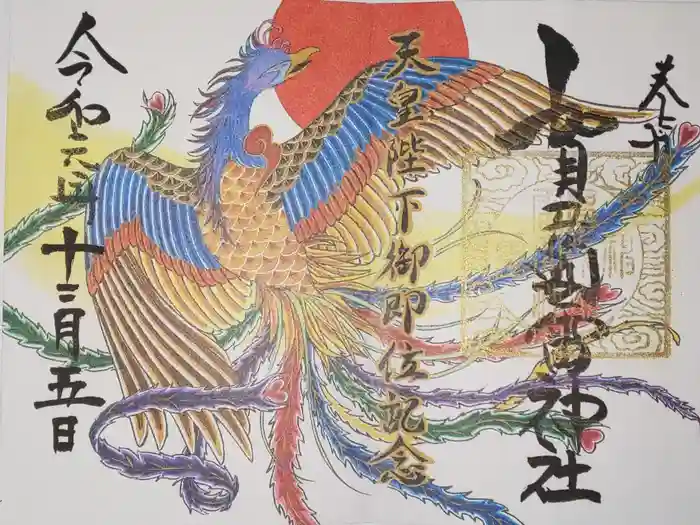 奉拝
賀茂別雷神社
天皇陛下御即位記念
令和元年十二月五日